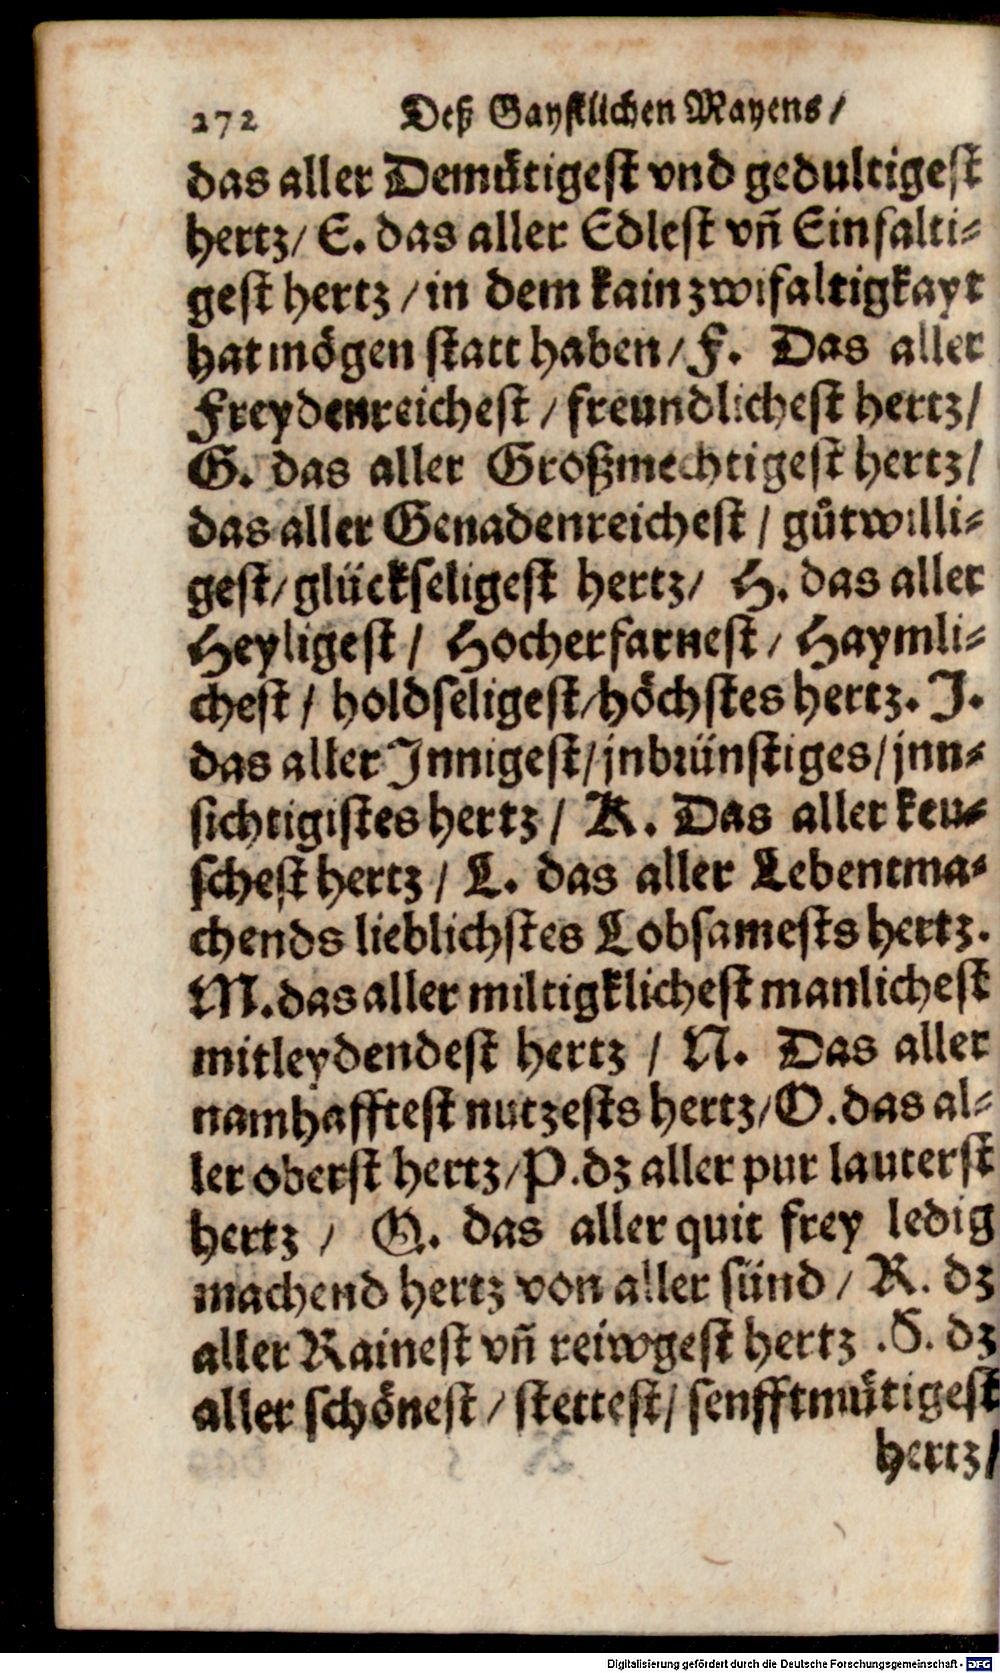 272 Deß Gaystlichen Mayens /
das aller Demütigest vnd gedultigest
hertz / E. das aller Edlest vñ Einfalti⸗
gest hertz / in dem kain zwifaltigkayt
hat mögen statt haben / F. Das aller
Freydenreichest / freundlichest hertz /
G. das aller Großmechtigest hertz /
das aller Genadenreichest / gůtwilli⸗
gest / glückseligest hertz / H. das aller
Heyligest / Hocherfarnest / Haymli⸗
chest / holdseligest / höchstes hertz. J.
das aller Innigest / jnbrünstiges / jnn⸗
sichtigistes hertz / K. Das aller keu⸗
schest hertz / L. das aller Lebentma⸗
chends lieblichstes Lobsamests hertz.
M. das aller miltigklichest manlichest
mitleydendest hertz / N. Das aller
namhafftest nutzests hertz / O. das al⸗
ler oberst hertz / P. dz aller pur lauterst
hertz / Q. das aller quit frey ledig
machend hertz von aller sünd / R. dz
aller Rainest vñ reiwgest hertz . S. dz
aller schönest / stettest / senfftmütigest
hertz /
Digitalisierung gefördert durch die Deutsche Forschungsgemeinschaft - DFG